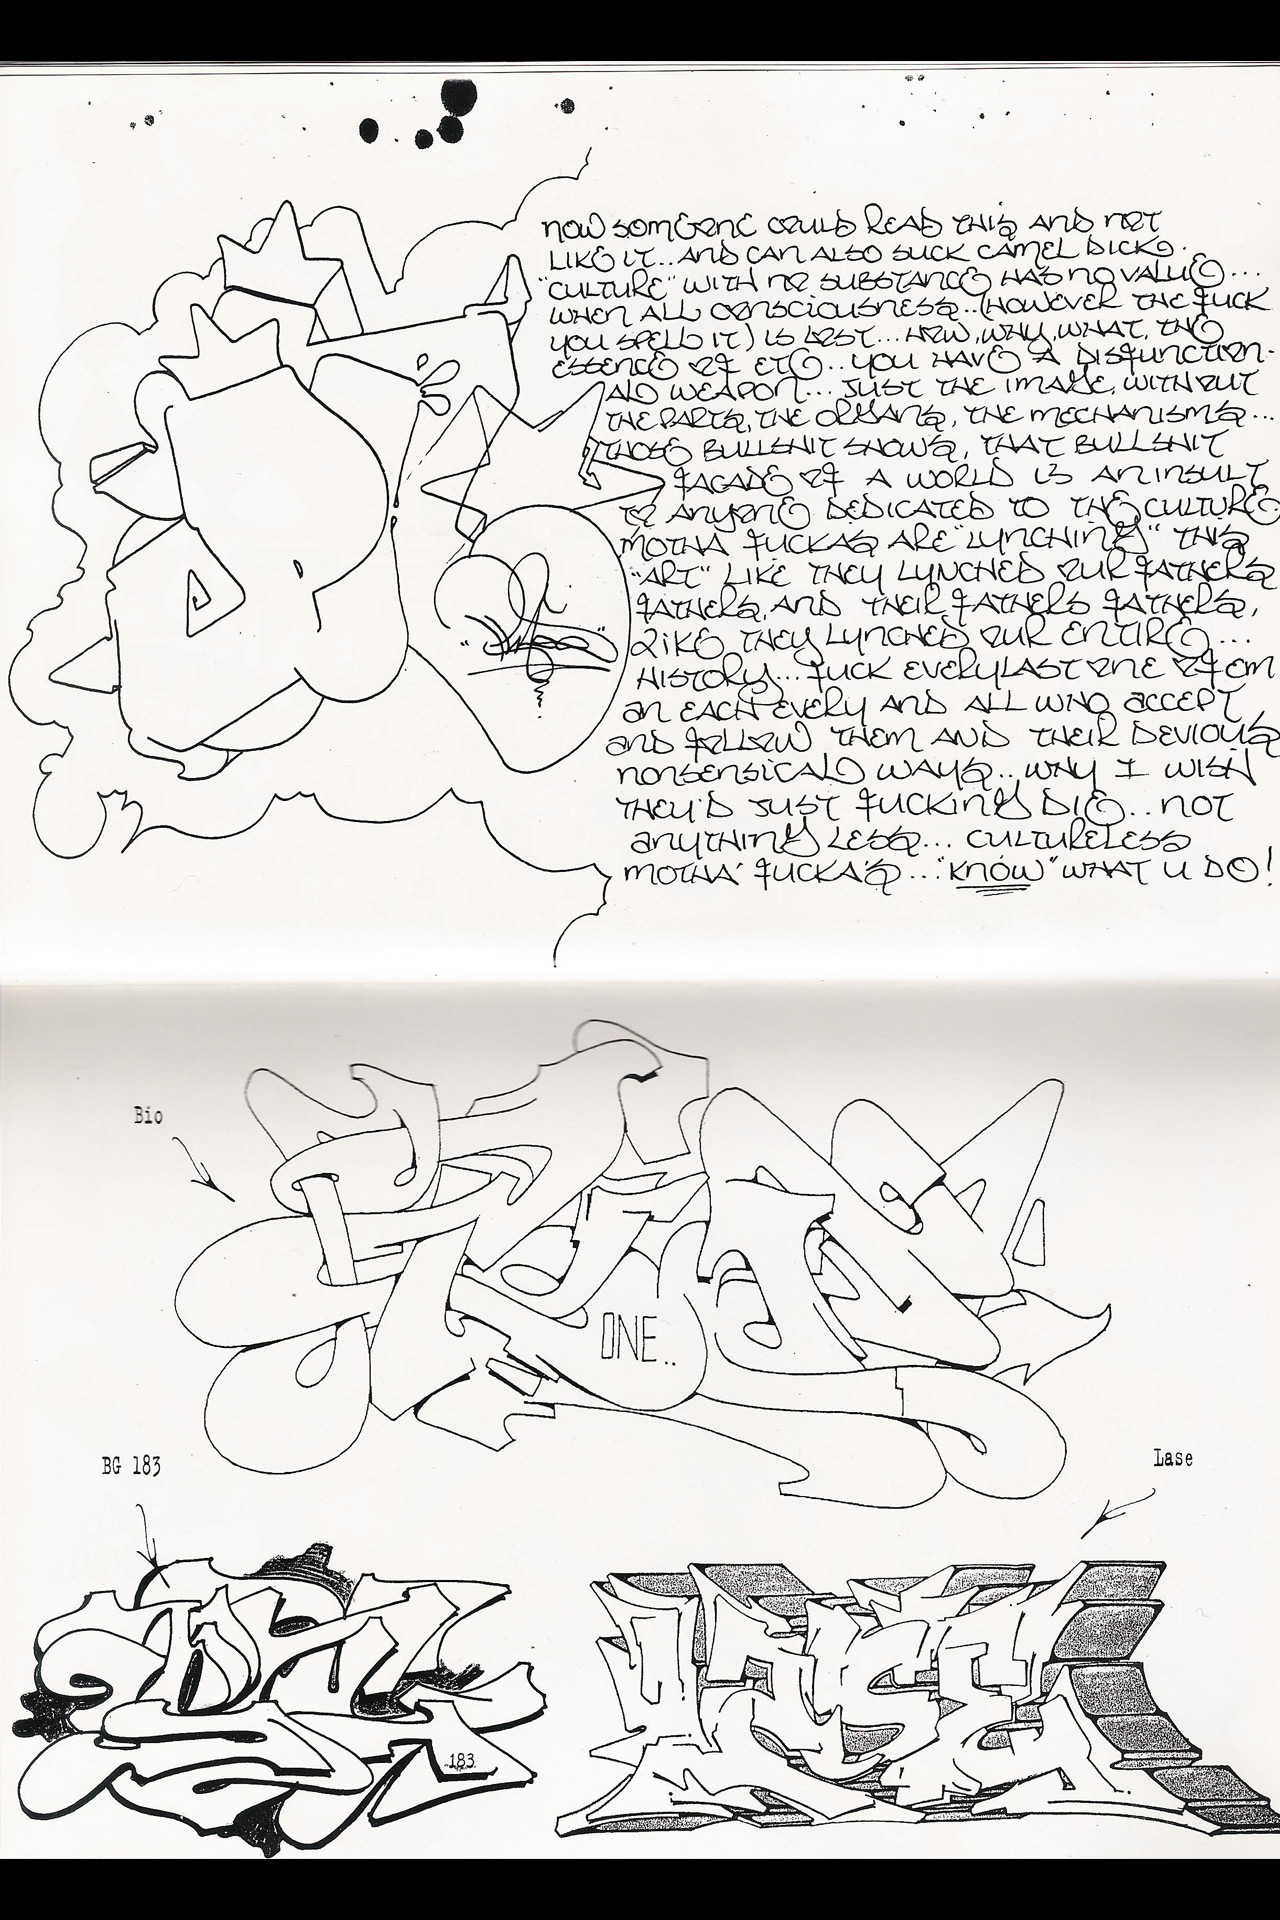 NOW SOMEONE COULD READ THIS AND NOT
LIKE IT...AND CAN ALSO SUCK CAMEL DICK.
"CULTURE" WITH NO SUBSTANCE HAS NO VALUE...
WHEN ALL CONSCIOUSNESS..(HOWEVER THE FUCK
YOU SPELL IT) IS LOST...HOW, WHY, WHAT, THE
ESSENCE OF ETC...YOU HAVE A DISFUNCTION-
AL WEAPON...JUST THE IMAGE, WITHOUT
THE PARTS, THE ORGANS, THE MECHANISMS...
THOSE BULLSHIT SHOWS, THAT BULLSHIT
FACADE OF A WORLD IS AN INSULT
TO ANYONE DEDICATED TO THE CULTURE
MOTHA FUCKAS ARE "LYNCHING" THIS
"ART" LIKE THEY LYNCHED OUR FATHERS
FATHERS, AND THEIR FATHERS FATHERS,
LIKE THEY LYNCHED OUR ENTIRE...
HISTORY...FUCK EVERY LAST ONE OF EM
AN EACH EVERY AND ALL WHO ACCEPT
AND FOLLOW THEM AND THEIR DEVIOUS
NONSENSICAL WAYS...WHY I WISH
THEY'D JUST FUCKING DIE...NOT
ANYTHING LESS... CULTURELESS
MOTHA' FUCKA'S..."KNOW" WHAT U DO!
Bio
ONE..
BG 183
Lase
183
LASE